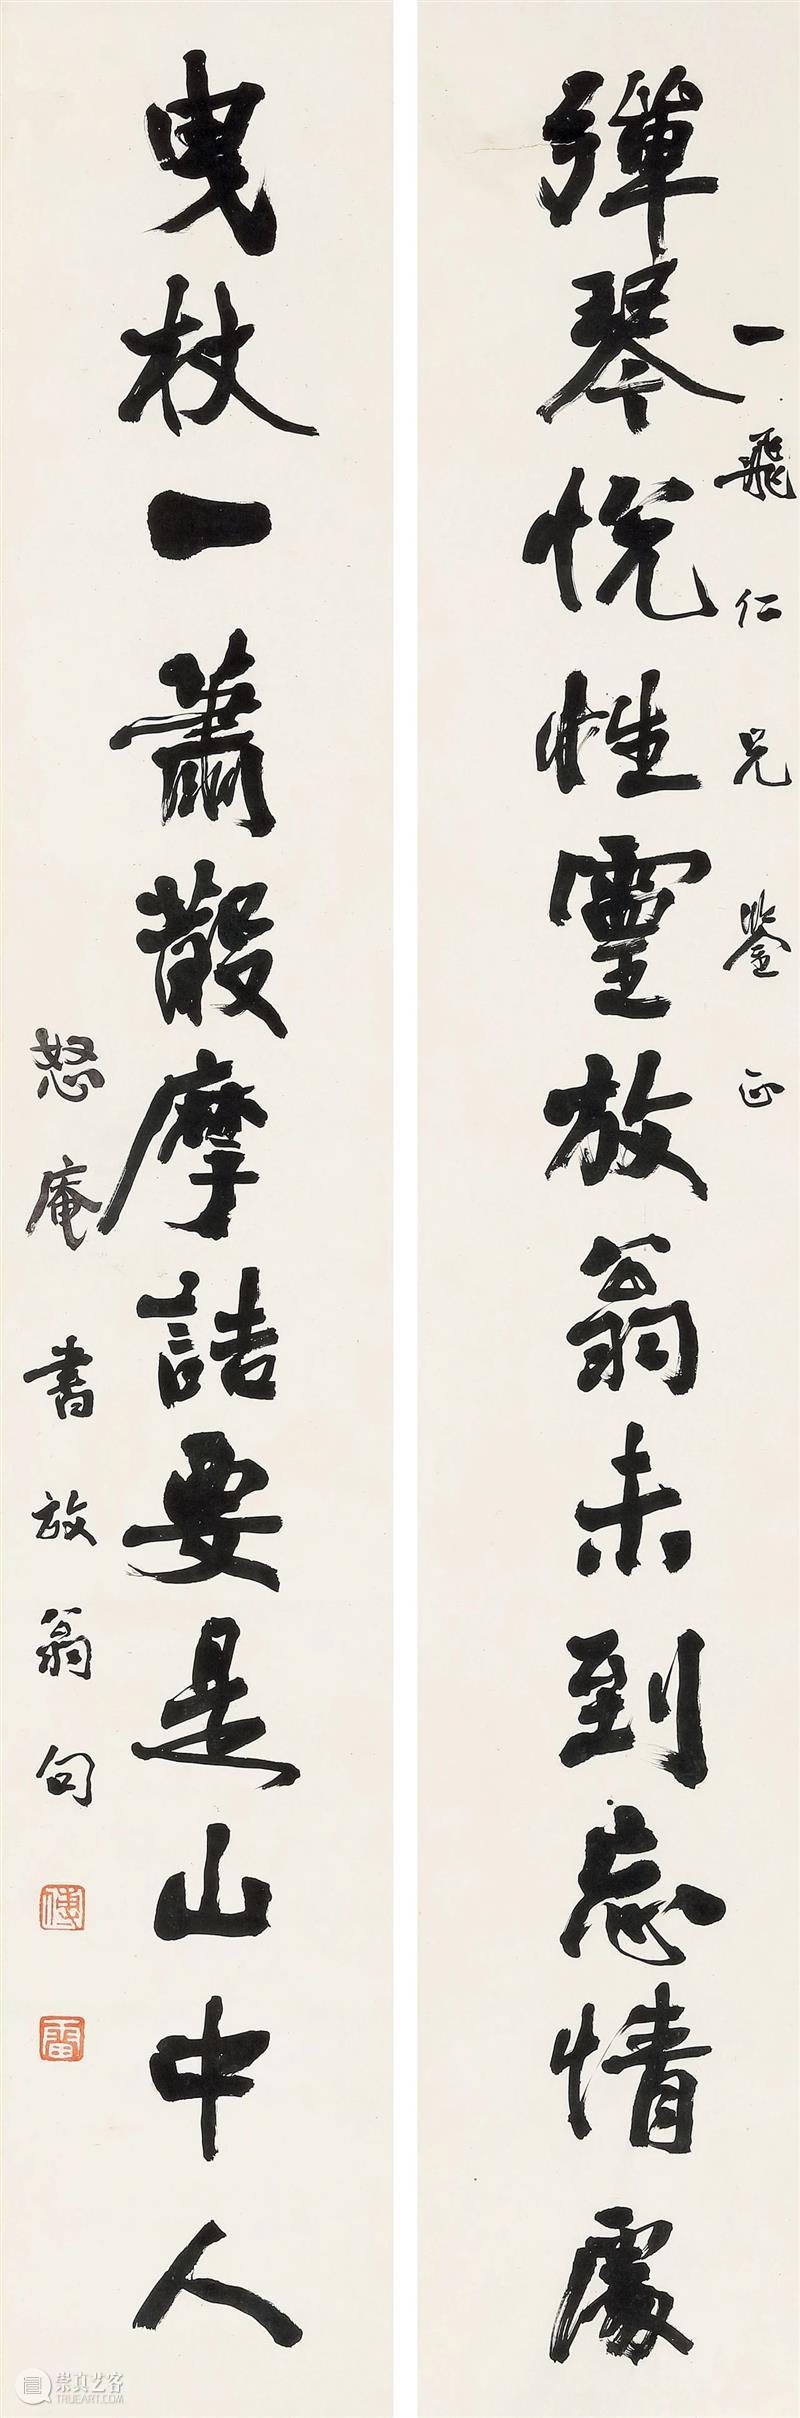 彈琴悅性靈放翁未到忘情處
一飛仁兄鑒正
曳杖一蕭散摩詰要是山中人
怒庵書放翁句
傅
雷
崇真艺客
TRUEART.COM